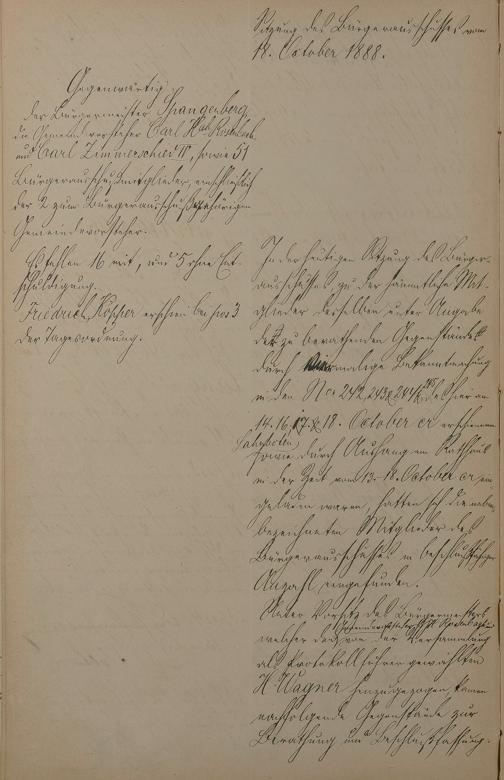 Sitzung des Bürgerausschusses vom
18. October 1888.
Gegenwärtig
der Bürgermeister Spangenberg,
die Gemeindevorsteher Carl
und Carl Zimmerschied IV, sowie 51
Bürgerausschußmitglieder, einschließlich
der 2 zum Bürgerausschuß gehörigen
Gemeindevorsteher.
Es fehlen 16 mit, und 5 ohne Ent-
schuldigung.
Friedrich Köpper erschien bei pos 3
der Tagesordnung.
In der heutigen Sitzung des Bürger-
ausschusses, zu der sämmtliche Mit-
glieder desselben unter Angabe
der zu berathenden Gegenstände
durch malige Bekanntmachung
in den Nos 242, 243, 244 & 245 des hier am
14. 16. 17. & 18. October cr erschienenen
sowie durch Aushang am Rathhaus
in der Zeit vom 13.-18. October cr ein-
geladen waren, hatten sich die neben-
bezeichneten Mitglieder des
Bürgerausschusses in beschlußfähiger
Anzahl eingefunden.
Unter Vorsitz des Bürgermeisters
welcher den von der Versammlung
als Protokollführer gewählten
H Wagner hinzugezogen, kamen
nachfolgende Gegenstände zur
Berathung und Beschlußfassung.